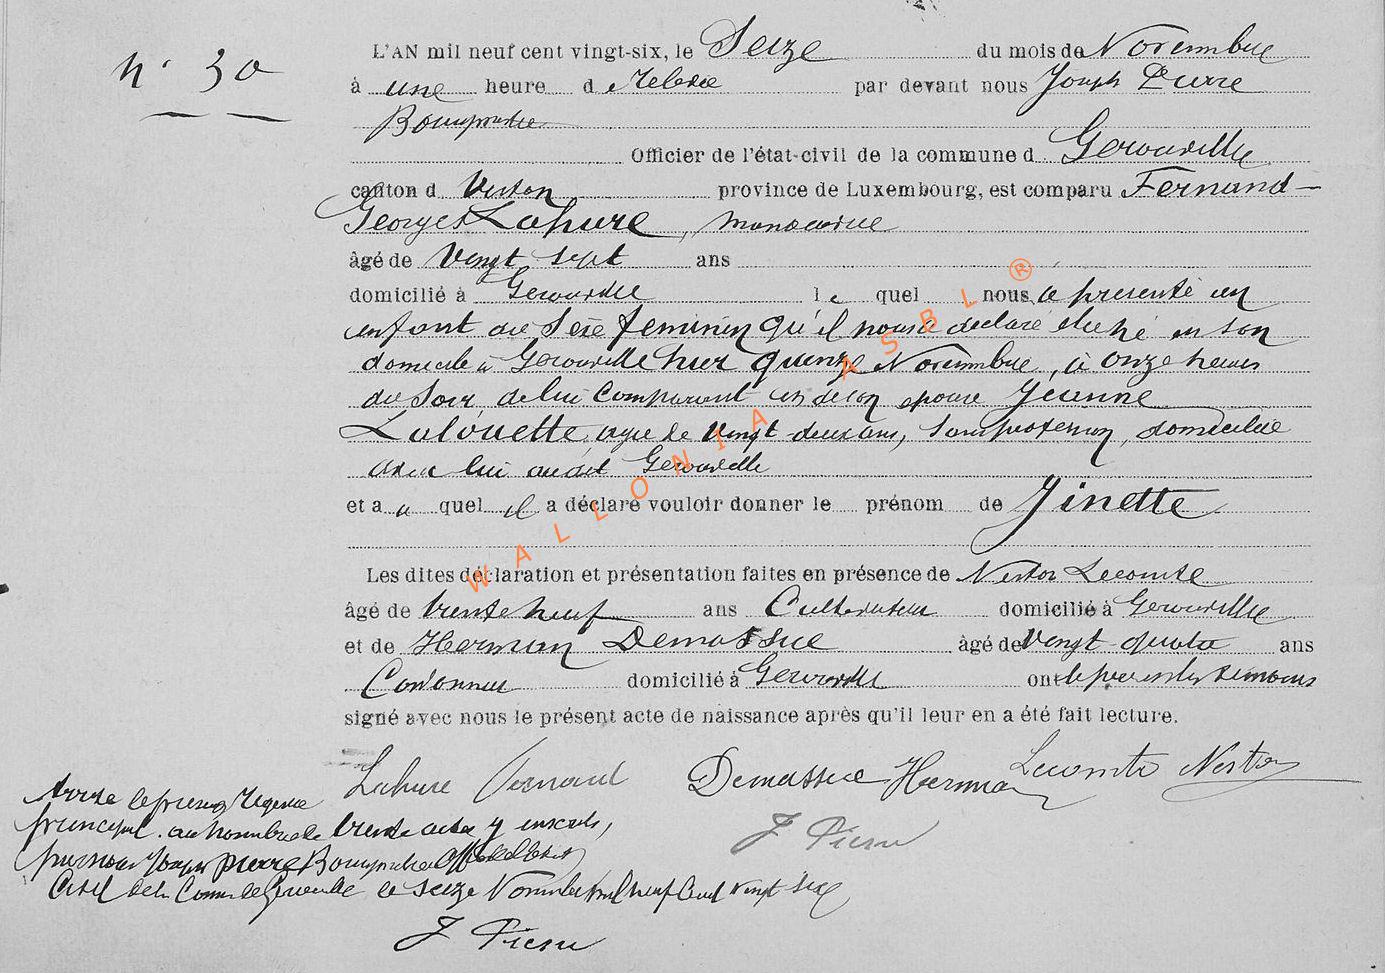 N° 30
L'AN mil neuf cent vingt-six, le Seize du mois de Novembre
à une heure d e relevée par devant nous Joseph Pierre
Officier de l'état-civil de la commune d Gerouville
canton d Virton province de Luxembourg, est comparu Fernand-
Georges Lahure, manoeuvre
âgé de vingt sept ans
domicilié à Gerouville le quel nous a présenté un
enfant du sexe féminin qu'il nous a déclaré être né en son
domicile à Gerouville hier quinze Novembre, à onze heures
du soir, de lui comparant et de son épouse Jeanne
Lalouette, agée de vingt deux ans, sans profession, domiciliée
avec lui audit Gerouville
et a u quel il a déclaré vouloir donner le prénom de Ginette
Les dites déclaration et présentation faites en présence de Nestor Lecomte
âgé de trente neuf ans Cultivateur domicilié à Gerouville
et de Herman Demassue âgé de vingt-quatre ans
Cordonnier domicilié à Gerouville ont le père et les témoins
signé avec nous le présent acte de naissance après qu'il leur en a été fait lecture.
Lahure Fernand Demassue Herman Lecomte Nestor
Arrêté le présent Registre
principal au nombre de trente actes y inscrits,
par nous Joseph Pierre officier de l'état
Civil de la Commune de Gerouville le seize Novembre mil neuf cent vingt six
WALLONIA ASBL ®